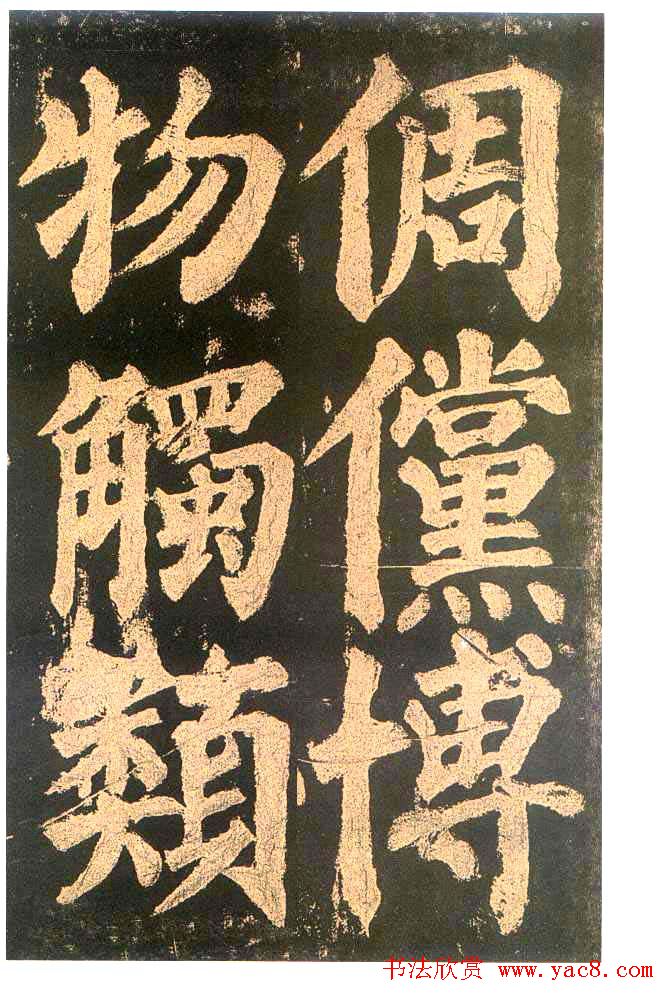 倜儻博
物觸類
书法欣赏 www.yac8.com